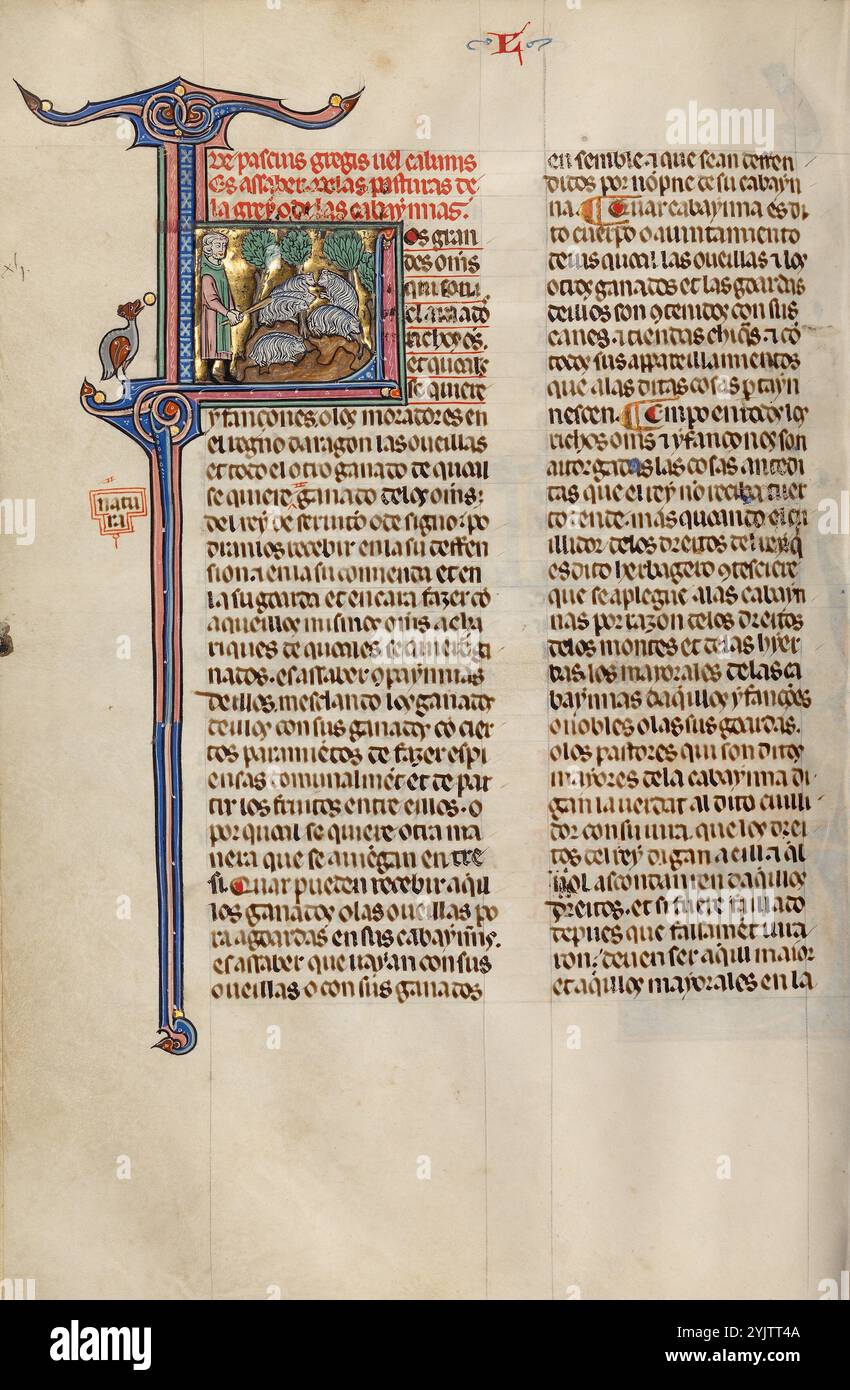 L
De pascuis gregis uel cabannis
Es assaber de las pasturas de
la grey o de las cabaynnas.
Los gran
des oms
qui son
el arado
richos oms.
et quales
se quiere
yfançones. o los moradores en
el regno daragon las oueillas
et todo el otro ganado de quall
se quiere ganado de los oms:
natu
ra
del rey de seruicio o de signo: po
dran los recebir en la su deffen
sion. a en la su comienda et en
la su goarda et encara fazer cō
aqueillos mismos oms. a cha
riques de quales se quiere ga
nados. es assaber 9paynnias
deillos. mesclando los ganados
deillos con sus ganados cō cier
tos paramientos de fazer espi
ensas comunalmēt et de par
tir los fruitos entre eillos. o
por quall se quiere otra ma
nera que se amēgan entre
si. Quar pueden recebir aqll
los ganados o las oueillas po
ra agoardas en sus cabaynns.
es assaber que uayan con sus
oueillas o con sus ganados
en semble. a que sean deffen
didos por nōpne de su cabayn
na. Quar cabaynna es di
to cuerpo o aiuntamiento
de uis quall las oueillas a los
otros ganados et las goardas
deillos son 9tenidos con sus
canes. a tiendas chiqs. a cō
todos sus appareillamientos
que a las ditas cosas ptayn
nescen. Empo en todos los
richos oms a yfançones son
atorgadas las cosas antedi
tas que el rey no reciba tuer
to ende. mas quando el cu
illidor de los dreitos del rey q
es dito herbagero 9tesciere
que se aplegue a las cabayn
nas por razon de los dreitos
de los montes et de las hyer
bas. los mayorales de las ca
baynnas daqllos yfançōes
o nobles o las sus goardas.
o los pastores qui son ditos
mayores de la cabaynna di
gan la uerdat al dito cuilli
dor con su iura. que los drei
tos del rey digan a eill. a ql
nol ascondan ren daqllos
dreitos. et si fuere faillado
depues que fallamēt iura
ron. deuen ser aqll maior
et aqllos mayorales en la
alamy
Image ID: 2YJTT4A
www.alamy.com